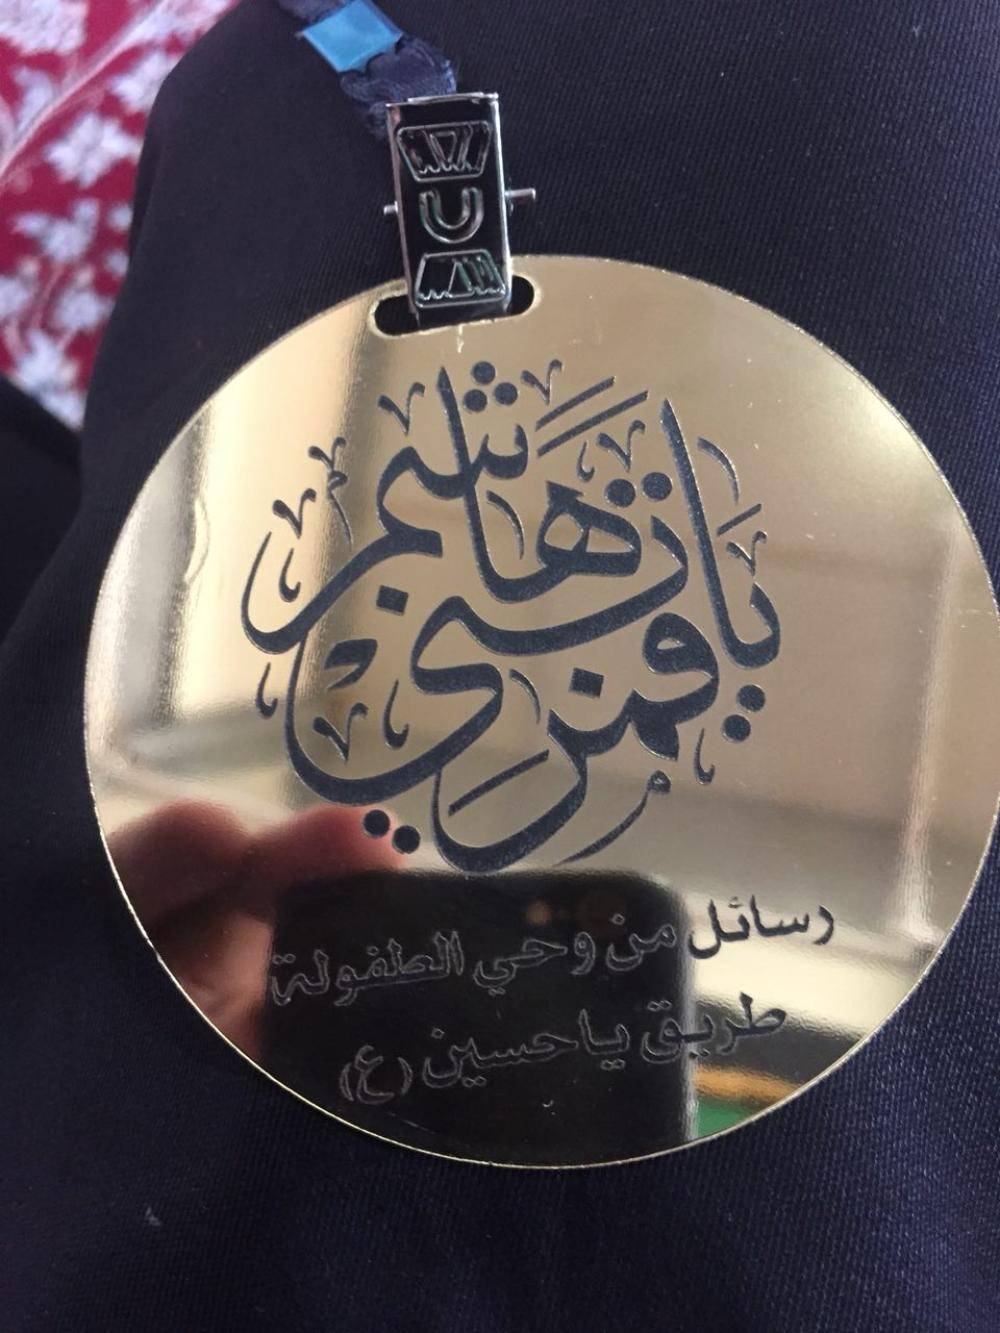 يا قمر بني هاشم
رسائل من وحي الطفولة
طريق يا حسين (ع)